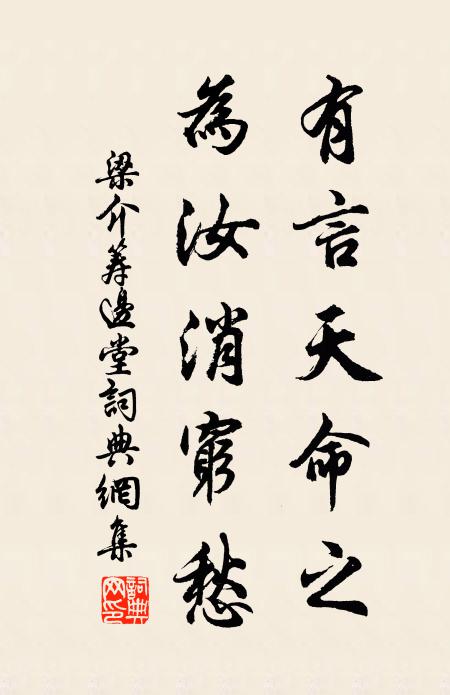 有言天命之
為汝消窮愁
梁介籌邊堂詞典網集
詞典
网印